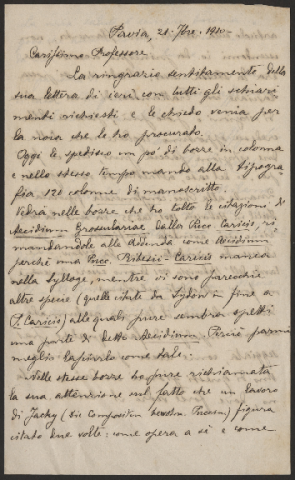 Pavia, 21. 7bre. 1910.
Carissimo Professore
La ringrazio sentitamente della
sua lettera di ieri con tutti gli schiari
menti richiesti e le chiedo venia per
la noia che le ho procurato.
Oggi le spedisco un pò di bozze in colonna
e nello stesso tempo mando alla tipogra
fia 120 colonne di manoscritto.
Vedrà nelle bozze che ho tolto le citazioni di
Aecidium Grossulariae dalla Pucc. Caricis, ri
mandandole alla addenda come Aecidium
perchè una Pucc. Ribesii-Caricis manca
nella Sylloge, mentre vi sono parecchie
altre specie (quelle citate da Sydow in fine a
P. Caricis) alle quali pure sembra spetti
una parte di detto Aecidium. Perciò parmi
meglio lasciarlo come tale.
Nelle stesse bozze ho pure richiamata
la sua attenzione sul fatto che un lavoro
di Jacky (Die Compositen bewohn. Puccin.) figura
citato due volte: come opera a sè e come